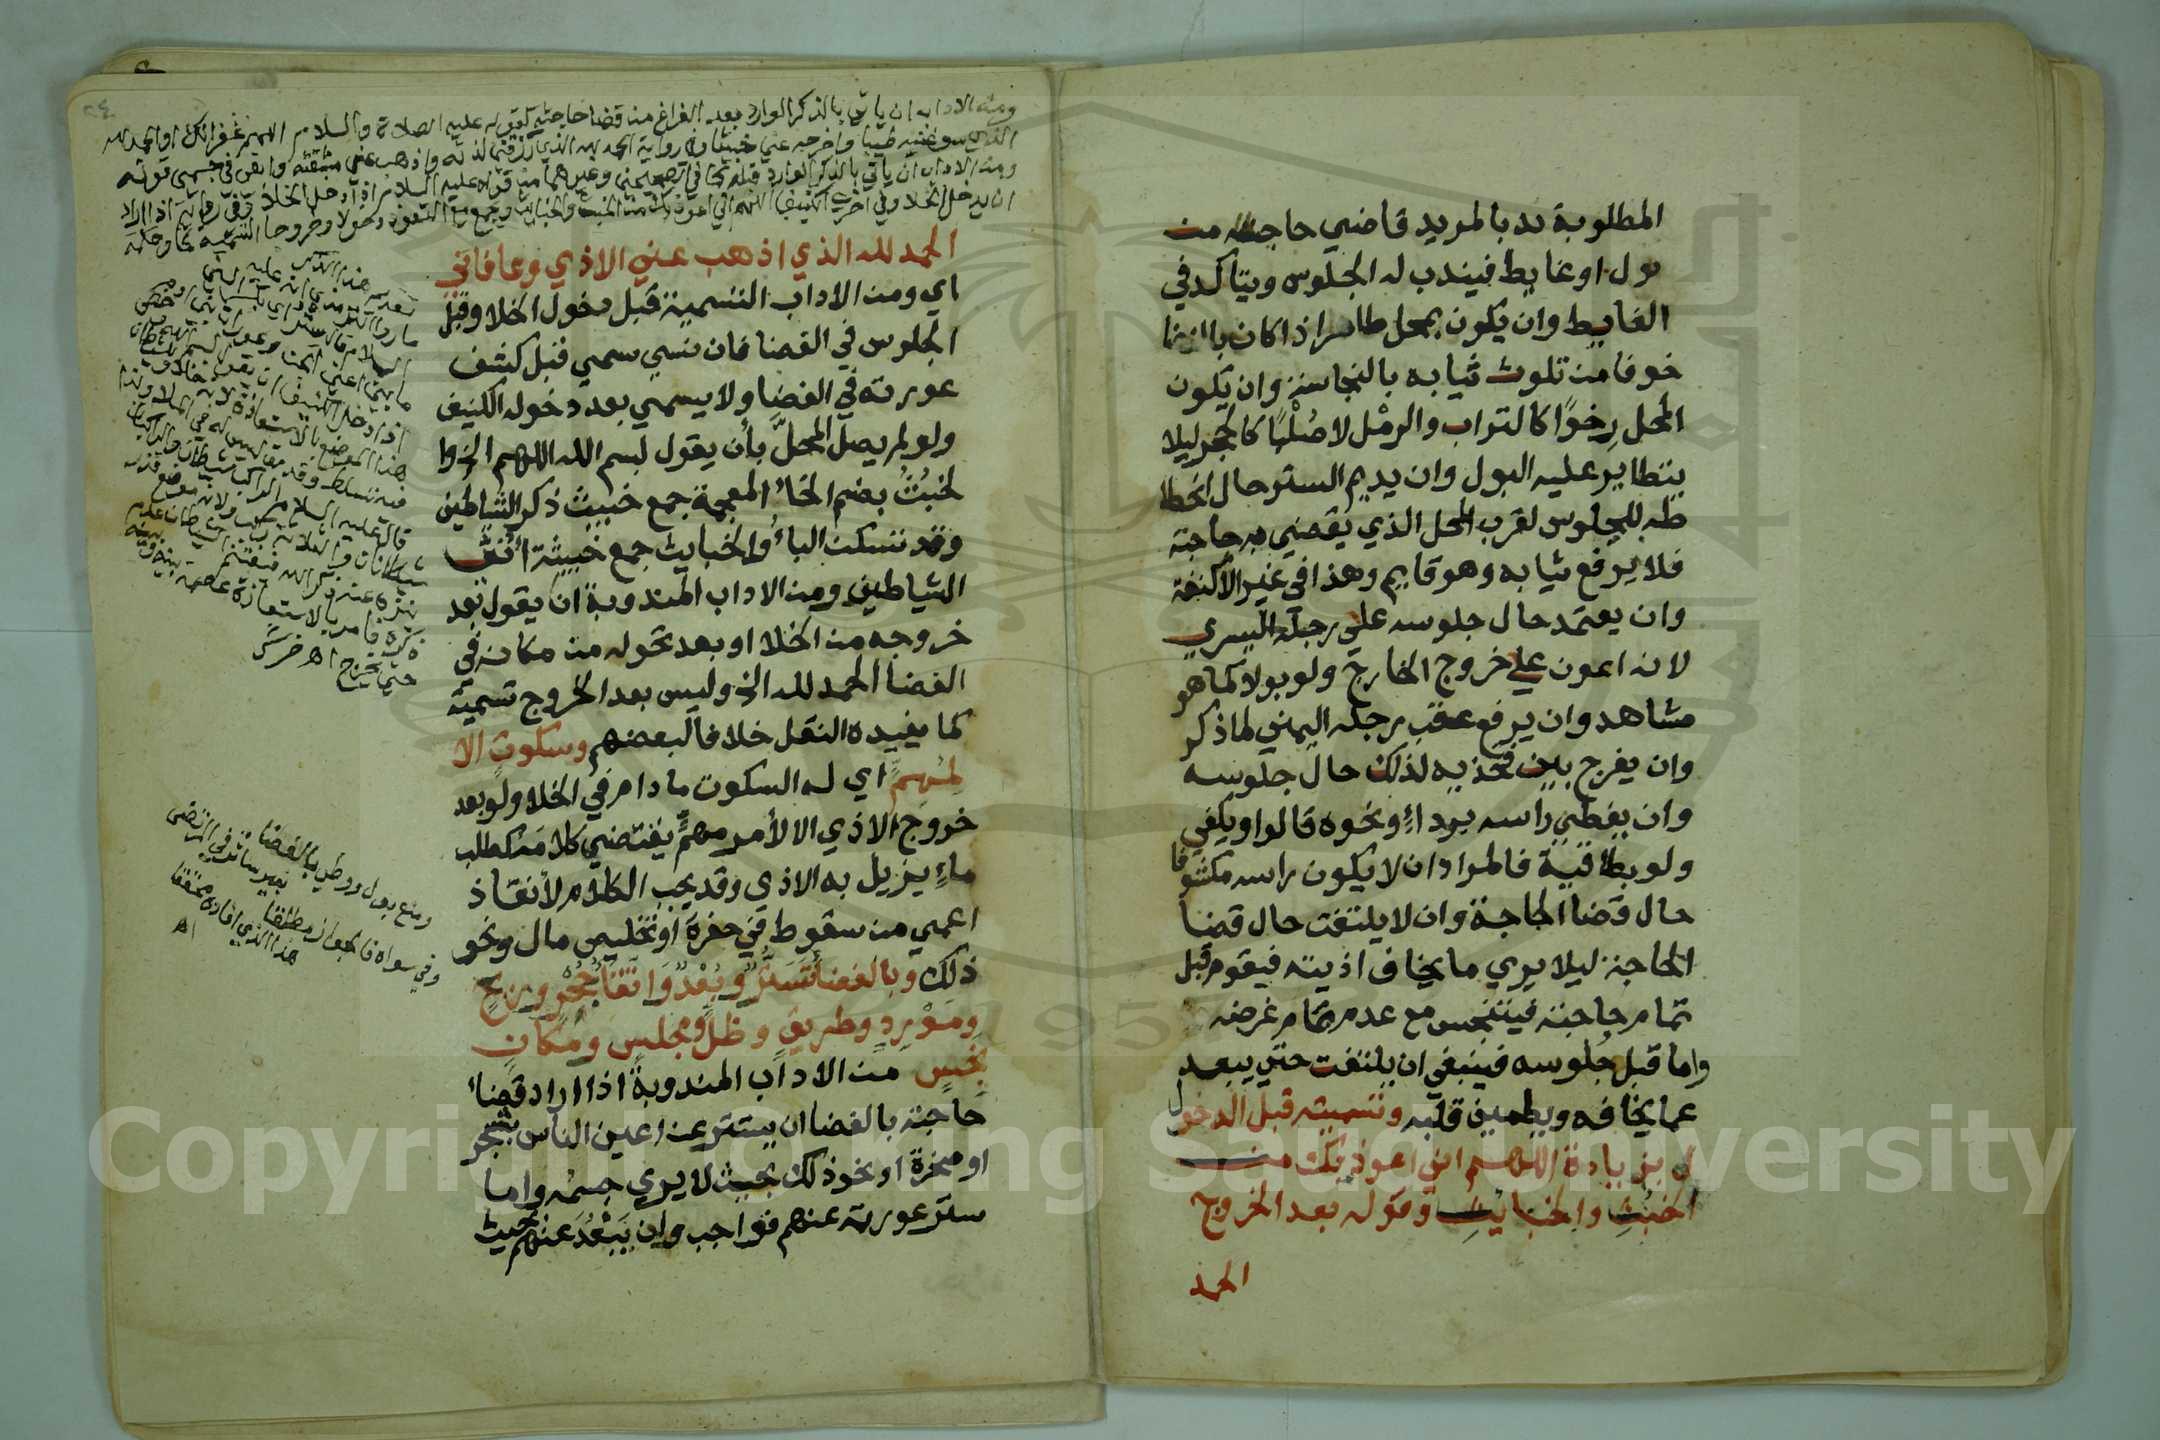 المطلوبة ندبا لمريد قاضي حاجته من
بول او غايط فيندب له الجلوس ويتاكد في
الغايط وان يكون بمحل طاهر اذا كان بالفضا
خوفا من تلوث ثيابه بالنجاسة وان يكون
المحل رِخوًا كالتراب والرمْل لا صُلْبًا كالحجر ليلا
يتطاير عليه البول وان يديم الستر حال انحطا
طه للجلوس لقرب المحل الذي يقضي به حاجته
فلا يرفع ثيابه وهو قايم وهذا في غير الأكنفة
وان يعتمد حال جلوسه علي رجله اليسري
لانه اعون علي خروج الخارج ولو بولا كما هو
مشاهد وان يرفع عقب رجله اليمني لما ذكر
وان يفرج بين فخذيه لذلك حال جلوسه
وان يغطي راسه برداءٍ ونحوه قالوا ويكفي
ولو بطاقية فالمراد ان لا يكون راسه مكشوفا
حال قضا الحاجة وان لا يلتفت حال قضا
الحاجة ليلا يري ما يخاف اذيته فيقوم قبل
تمام حاجته فيتنجس مع عدم تمام غرضه
واما قبل جُلوسه فينبغي ان يلتفت حتي يبعد
عما يخافه ويطمين قلبه وتسميته قبل الدخول
بزيادة اللهم اني اعوذ بك من
الخبُثِ والخبايثِ وقوله بعد الخروج
الحمد
٢٤
ومن الاداب ان ياتي بالذكر الوارد بعد الفراغ من قضا حاجته كقوله عليه الصلاة والسلام اللهم غفرانك او الحمد لله
الذي سوغنيه طيبا واخرجه عني خبيثا وفي رواية الحمد لله الذي رزقني لذته واذهب عني مشقته وابقي في جسمي قوته
ومن الاداب ان ياتي بالذكر الوارد قبله كما في الصحيحين وغيرهما من قوله عليه السلام اذا دخل الخلا وفي رواية اذا اراد
ان يدخل الخلا وفي اخري الكنيف اللهم اني اعوذ بك من الخبث والخبايث ويجمع مع التعوذ دخولا وخروجا التسمية
الحمد لله الذي اذهب عني الاذي وعافاني
اي ومن الاداب التسمية قبل دخول الخلا وقبل
الجلوس في الفضا فان نسي سمي قبل كشف
عورته في الفضا ولا يسمي بعد دخوله الكنيف
ولو لم يصل المحلَّ بأن يقول بسم الله اللهم الخ وا
لخبُثُ بضم الخاء المعجمة جمع خبيث ذكر الشاطين
وقد تسكن الباءُ والخبايث جمع خبيثة أنثي
الشياطين ومن الاداب المندوبة ان يقول بعد
خروجه من الخلا او بعد تحوله من مكانه في
الفضا الحمد لله الخ وليس بعد الخروج تسمية
كما يفيده النقل خلافا لبعضهم وسكوتٌ الا
لمُهمٍّ اي له السكوت مادام في الخلا ولو بعد
خروج الاذي الا لأمر مهمٍّ يقتضي كلامَه كطلب
ماءٍ يزيل به الاذي وقد يجب الكلام لأنقاذ
اعمي من سقوط في حفرة او تخليص مال ونحو
ذلك وبالفضا تَسَتُّرٌ وبُعْدٌ وَاتّقاءُ جُحْرٍ وريح
ومَوْرِدٍ وطريقٍ وظلٍّ ومجلسٍ ومكانٍ
نجسٍ من الاداب المندوبة اذا اراد قضاء
حاجته بالفضا ان يستتر عن اعين الناس بشجر
او صخرة او نحو ذلك بحيث لا يري جسمُه واما
ستر عورته عنهم فواجب وان يَبْعُدَ عنهم بحيث
قال عليه السلام الراكب شيطان والراكبان
شيطانان والثلاثة ركب ولانه موضع قذر
حتي يخرج اهـ خرشي
ومنع بول ووطئ بالفضا
بغير ساتر في المرتضي
وفي سواه فالجواز مطلقا
هذا الذي افاده محققا
اهـ